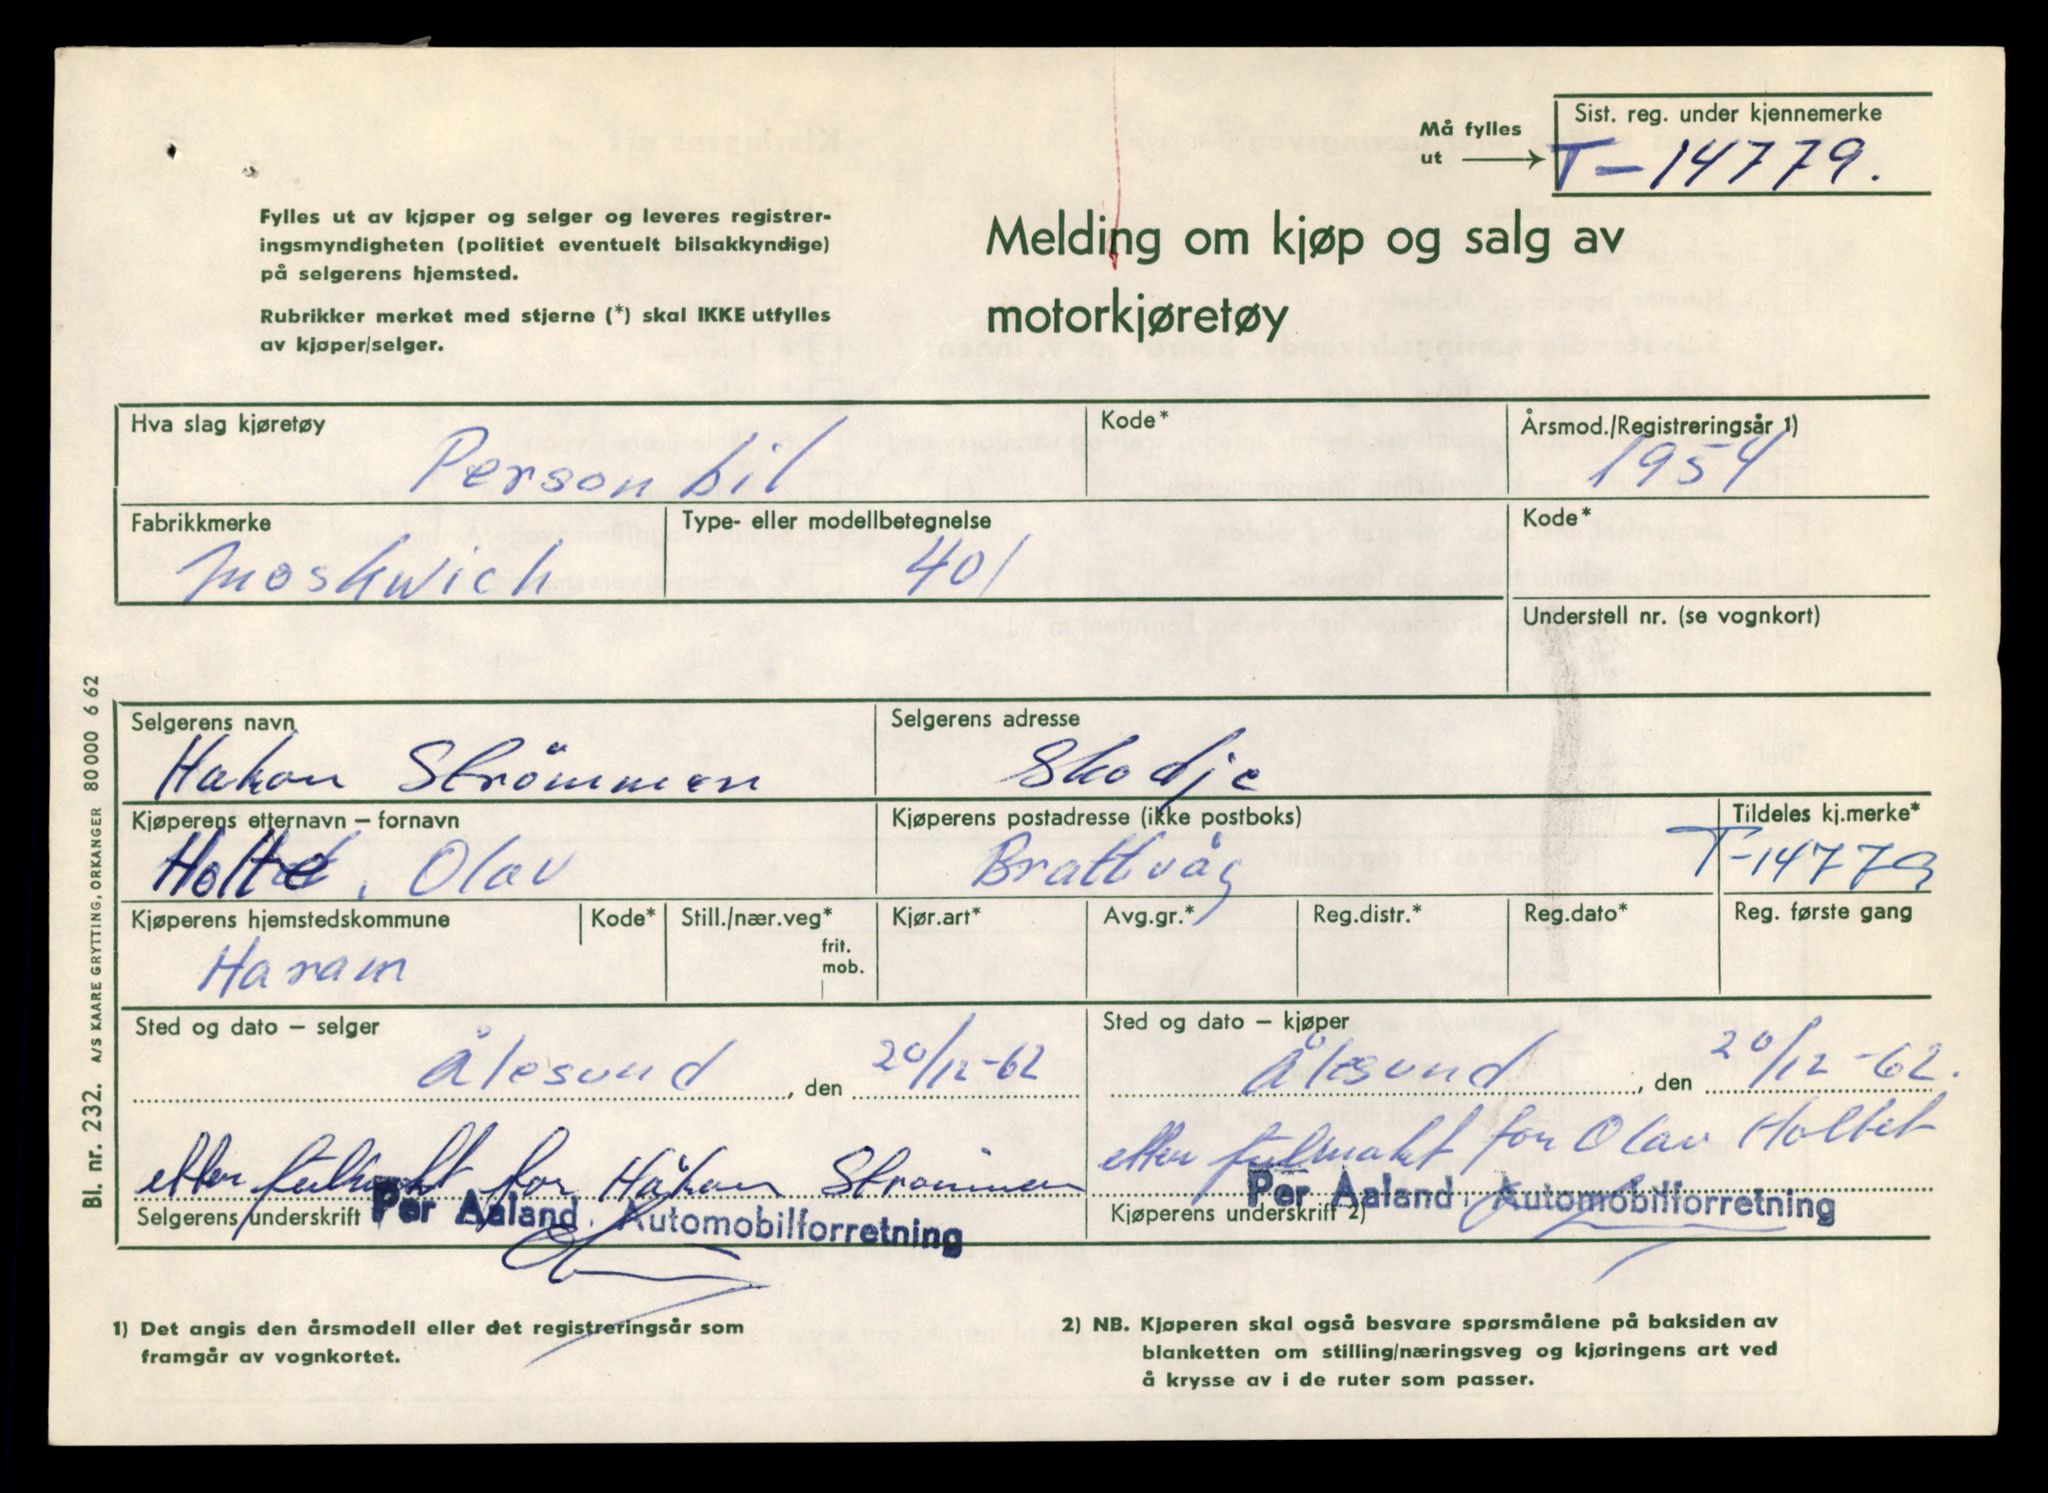 Må fylles
ut
Sist. reg. under kjennemerke
T-14779.
Fylles ut av kjøper og selger og leveres registrer-
ingsmyndigheten (politiet eventuelt bilsakkyndige)
på selgerens hjemsted.
Rubrikker merket med stjerne (*) skal IKKE utfylles
av kjøper/selger.
Melding om kjøp og salg av
motorkjøretøy
Hva slag kjøretøy
Personbil
Kode*
Årsmod./Registreringsår 1)
1954
Fabrikkmerke
Moskwich
Type- eller modellbetegnelse
401
Kode*
Understell nr. (se vognkort)
Selgerens navn
Hakon Strömmen
Selgerens adresse
Skodje
Kjøperens etternavn – fornavn
Holte, Olav
Kjøperens postadresse (ikke postboks)
Brattvåg
Tildeles kj.merke*
T-14779
Kjøperens hjemstedskommune
Haram
Kode*
Still./nær.veg*
frit.
mob.
Kjør.art*
Avg.gr.*
Reg.distr.*
Reg.dato*
Reg. første gang
Sted og dato – selger
Ålesund, den 20/12-62
Sted og dato – kjøper
Ålesund, den 20/12-62.
etter fullmakt for Håkon Strømmen
Selgerens underskrift
Per Aaland, Automobilforretning
etter fulmakt for Olav Holtet
Kjøperens underskriff 2)
Per Aaland, Automobilforretning
1) Det angis den årsmodell eller det registreringsår som
framgår av vognkortet.
2) NB. Kjøperen skal også besvare spørsmålene på baksiden av
blanketten om stilling/næringsveg og kjøringens art ved
å krysse av i de ruter som passer.
Bl. nr. 232. A/S KAARE GRYTTING, ORKANGER 80000 6 62